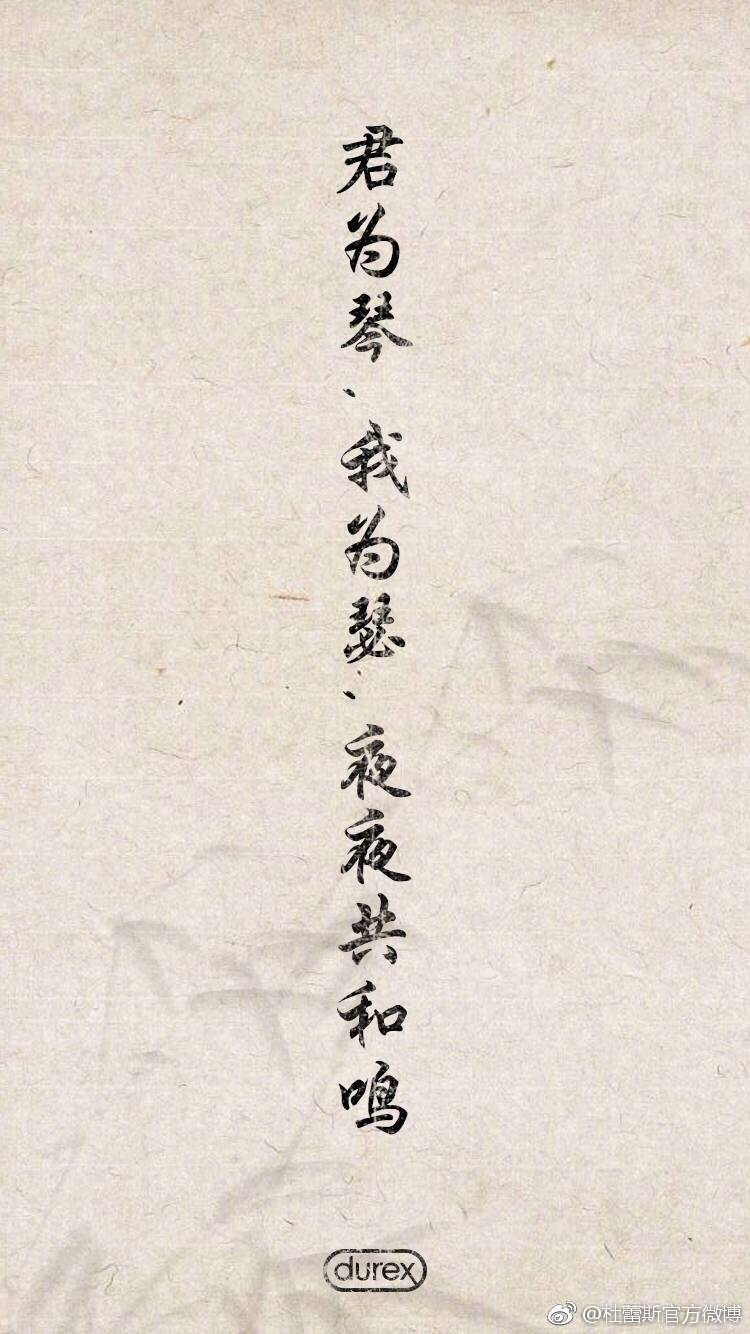 君为琴、我为瑟、夜夜共和鸣
durex
@杜蕾斯官方微博